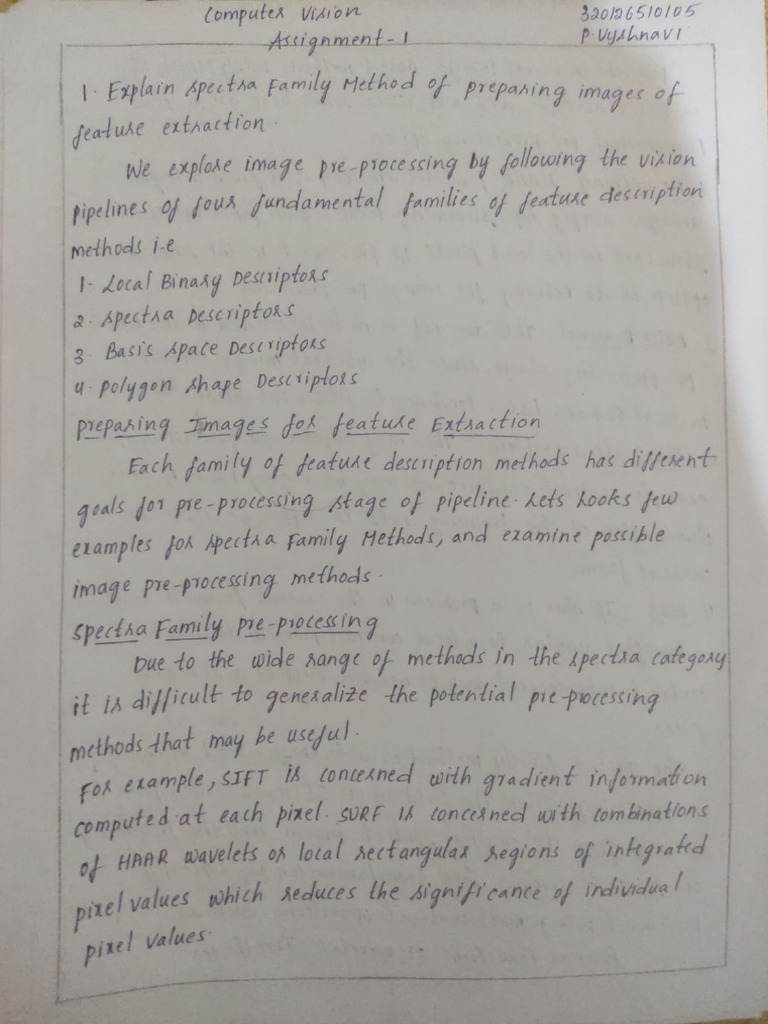 Computer Vision 320126510105
Assignment-1 P.Vyshnavi
1. Explain Spectra Family Method of preparing images of
feature extraction.
We explore image pre-processing by following the vision
pipelines of four fundamental families of feature description
methods i.e
1. Local Binary Descriptors
2. Spectra Descriptors
3. Basis Space Descriptors
4. Polygon Shape Descriptors
Preparing Images for feature Extraction
Each family of feature description methods has different
goals for pre-processing stage of pipeline. Lets Looks few
examples for Spectra Family Methods, and examine possible
image pre-processing methods.
Spectra Family pre-processing
Due to the wide range of methods in the spectra category
it is difficult to generalize the potential pre-processing
methods that may be useful.
For example, SIFT is concerned with gradient information
computed at each pixel. SURF is concerned with combinations
of HAAR wavelets or local rectangular regions of integrated
pixel values which reduces the significance of individual
pixel values.